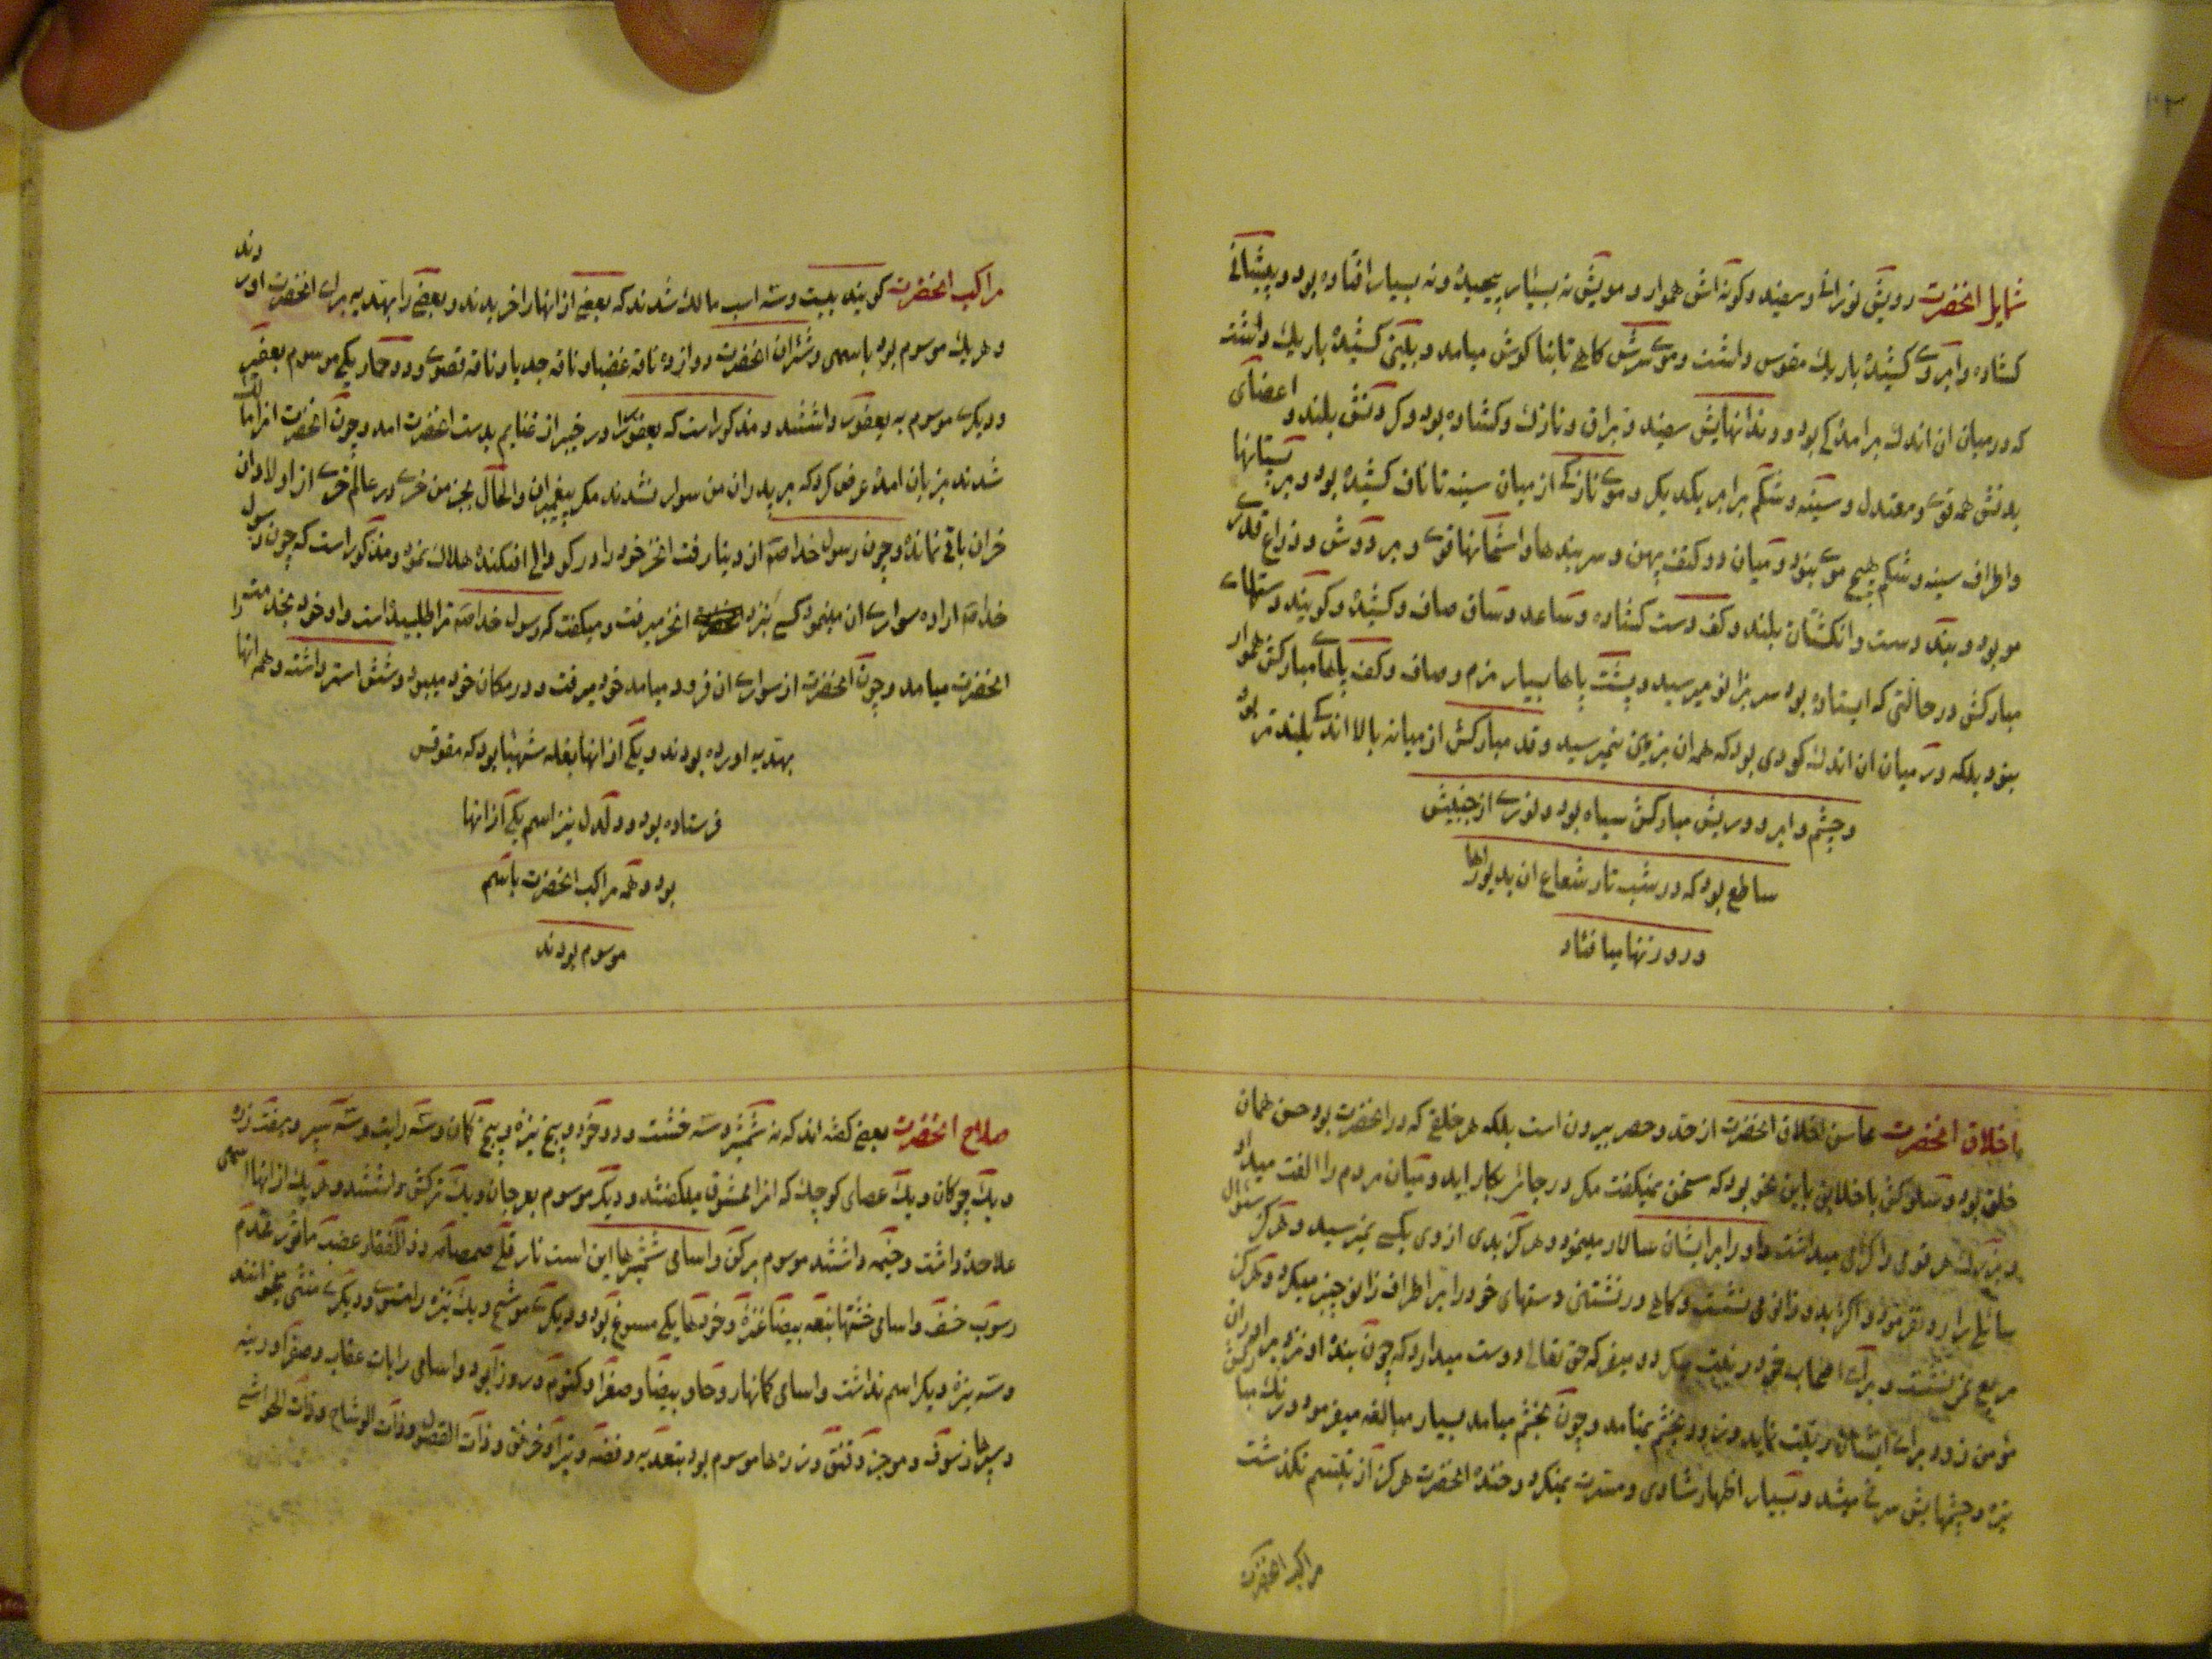 شمایل انحضرت رویش نورانے وسفید وکونه اش هموار ومویش نه بسیار پیچیده ونه بسیار افتاده بود وپیشانے
کشاده وابروے کشیدهٔ باریك مقوس داشت وموے سرش کاهے تا بنا کوش میامد وبینی کشیدهٔ باریك داشت
که درمیان ان اندك برامدکے بود ودندانهایش سفید وبراق ونازك وکشاده بود وکردنش بلند واعضای
بدنش همه قوے ومعتدل وسینه وشکم برابر یکدیکر وموے نازکے از میان سینه تا ناف کشیده بود وبر پستانها
واطراف سینه وشکم هیچ موے نبود ومیان دو کتف پهن وسر بندها واستخوانها قوے وبر دوش وذراع قدرے
مو بود وبند دست وانکشتان بلند وکف دست کشاده وساعد وساق صاف وکشیده وکویند دستهاے
مبارکش درحالتی که ایستاده بود سر بزانو میرسید وپشت پاها بسیار نرم وصاف وکف پاهاے مبارکش هموار
نبود بلکه درمیان ان اندك کودی بود که همه ان بزمین نمیرسید وقد مبارکش از میانه بالا اندکے بلندتر بود
وچشم وابرو وریش مبارکش سیاه بود ونورے از جبینش
ساطع بود که در شب تار شعاع ان بدیوارها
ودر وزنها میافتاد
اخلاق انحضرت محاسن اخلاق انحضرت از حد وحصر بیرون است بلکه هر خلقے که در انحضرت بود حسن همان
خلق بود وسلوکش با خلایق باین نحو بود که سخن نمیکفت مکر در جائز بکار اید ومیان مردم را الفت میداد
وبزرك هر قومی را کرامی میداشت واو را بر ایشان سالار مینمود وهرکز بدی از وی بکسے نمیرسید وهرکز سئوال
سائلے را رد نفرمود واکثر بدو زانو می نشست وکاهے در نشستن دستهای خود را بر اطراف زانو چنبر میکرد وهرکز
مربع نمی نشست وبراے اصحاب خود زینت میکرد ومیفرمود که حق تعالے دوست میدارد که چون بندهٔ او نزد برادران
مؤمن رود براے ایشان زینت نماید وزود بخشم نمیامد وچون بخشم میامد بسیار مبالغه میفرمود ورنك مبارکش
تیره وچشمهایش سرخ میشد وبسیار اظهار شادی ومسرت نمیکرد وخندهٔ انحضرت هرکز از تبسم نکذشت
مراکب انحضرت
مراکب انحضرت کویند بیست وسه اسب مالك شدند که بعضے از انها را خریدند وبعضے را بهدیه براے انحضرت اوردند
وهریك موسوم بود باسمی وشتران انحضرت دوازده ناقه غضبا وناقه جدیا وناقه قصوے ودو حمار یکے موسوم بعفیر
ودیکرے موسوم به یعفور داشتند ومذکور است که یعفور را در خیبر از غنایم بدست انحضرت امد وچون انحضرت انرا مالك
شدند بزبان امده عرض کرد که بر پدران من سوار نشدند مکر پیغمبران والحال بجز من خرے در عالم خرے از اولاد ان
خران باقے نمانده وچون رسول خدا صم از دنیا رفت انخر خود را در کودالے افکنده هلاك نمود ومذکور است که چون رسول
خدا صم اراده سوارے ان مینمود کسے نزد انخر میرفت ومیکفت که رسول خدا صم ترا طلبیده است واو خود بخدمت
انحضرت میامد وچون انحضرت از سوارے ان فرود میامد خود میرفت ودر مکان خود میبود وشش استر داشته وهمه انها را
بهدیه اورده بودند ویکے از انها بغله شهبا بود که مقوقس
فرستاده بود ودلدل نیز اسم یکے از انها
بود وهمه مراکب انحضرت باسم
موسوم بودند
صلاح انحضرت بعضے کفته اند که نه شمشیر وسه خشت ودو خود وپنج نیزه وپنج کمان وسه رایت وسه سپر وهفت زره
ویك چوکان ویك عصای کوچك که انرا ممشوق میکفتند ودیکر موسوم بعرجان ویك ترکش داشتند وهریك از انها اسمی
علاحده داشت وخیمه داشتند موسوم برکن واسامی شمشیرها این است نار قلے صمصامه ذو الفقار عضب ماثور مخذم
رسوب حتف واسامی خشتها نبعه بیضا عنزه وخودها یکے مسبوغ بود ودیکرے موشح ویك نیزه را مثوے ودیکرے مثنی میخوانند
وسه نیزه دیکر اسم نداشت واسامی کمانها روحا وبیضا وصفرا وکتوم وروزا بود واسامی رایات عقاب وصفرا وزینه
وسپرها زلوق وموجز وفتق وزرهها موسوم بود بسعدیه وفضه وبترا وخرنق وذات الفضول وذات الوشاح وذات الحواشے